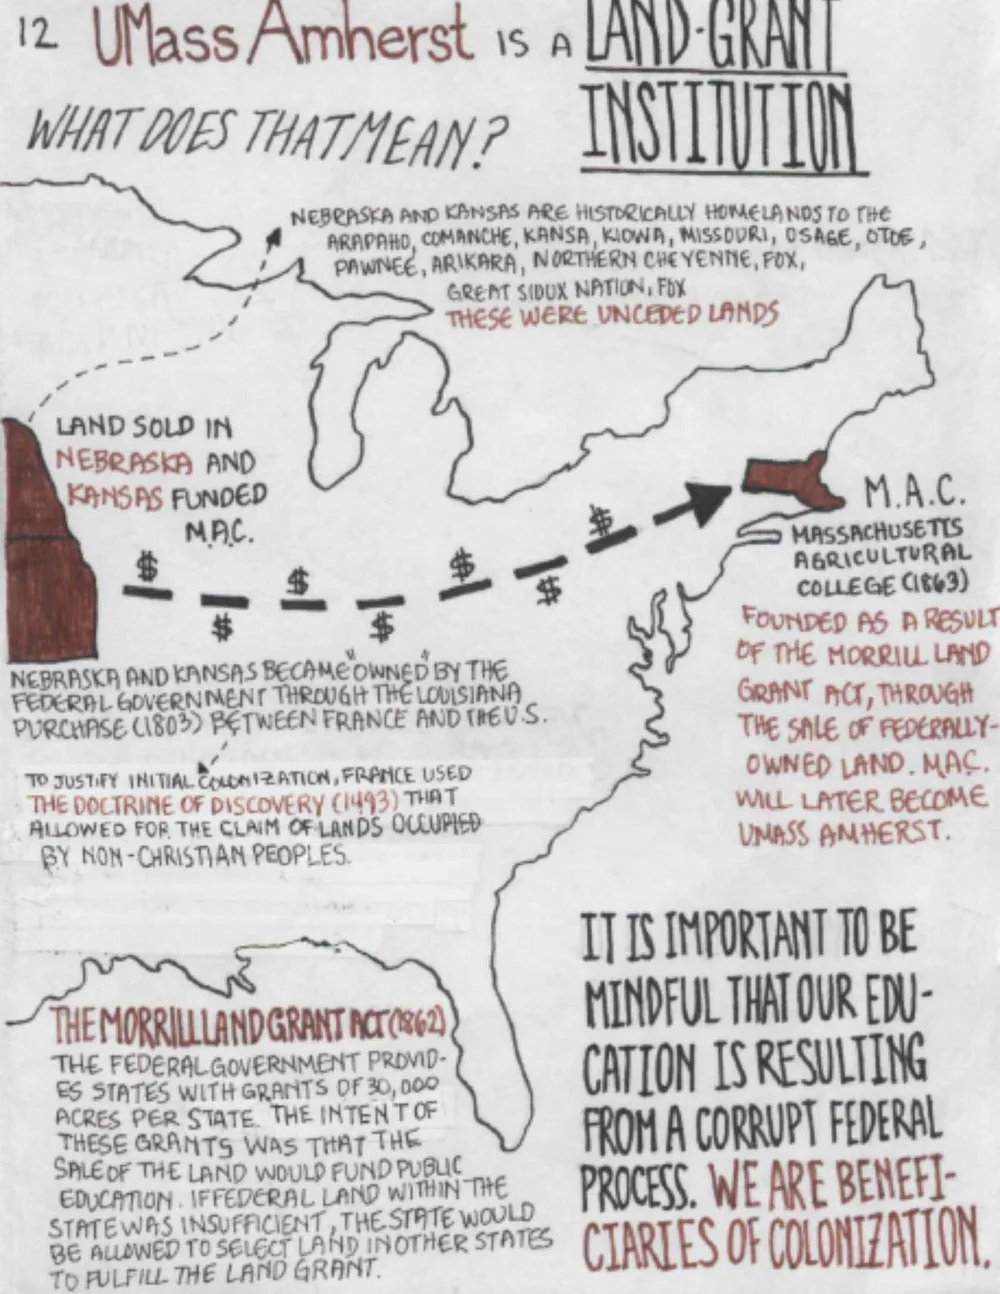 12 UMass Amherst IS A LAND-GRANT
INSTITUTION
WHAT DOES THAT MEAN?
NEBRASKA AND KANSAS ARE HISTORICALLY HOMELANDS TO THE
ARAPAHO, COMANCHE, KANSA, KIOWA, MISSOURI, OSAGE, OTOE,
PAWNEE, ARIKARA, NORTHERN CHEYENNE, FOX,
GREAT SIOUX NATION, FOX
THESE WERE UNCEDED LANDS
LAND SOLD IN
NEBRASKA AND
KANSAS FUNDED
M.A.C.
$ $ $ $ $ $ $
M.A.C.
MASSACHUSETTS
AGRICULTURAL
COLLEGE (1863)
FOUNDED AS A RESULT
OF THE MORRILL LAND
GRANT ACT, THROUGH
THE SALE OF FEDERALLY-
OWNED LAND. MAC.
WILL LATER BECOME
UMASS AMHERST.
NEBRASKA AND KANSAS BECAME "OWNED" BY THE
FEDERAL GOVERNMENT THROUGH THE LOUISIANA
PURCHASE (1803) BETWEEN FRANCE AND THE U.S.
TO JUSTIFY INITIAL COLONIZATION, FRANCE USED
THE DOCTRINE OF DISCOVERY (1493) THAT
ALLOWED FOR THE CLAIM OF LANDS OCCUPIED
BY NON-CHRISTIAN PEOPLES.
THE MORRILL LAND GRANT ACT (1862)
THE FEDERAL GOVERNMENT PROVID-
ES STATES WITH GRANTS OF 30,000
ACRES PER STATE. THE INTENT OF
THESE GRANTS WAS THAT THE
SALE OF THE LAND WOULD FUND PUBLIC
EDUCATION. IF FEDERAL LAND WITHIN THE
STATE WAS INSUFFICIENT, THE STATE WOULD
BE ALLOWED TO SELECT LAND IN OTHER STATES
TO FULFILL THE LAND GRANT.
IT IS IMPORTANT TO BE
MINDFUL THAT OUR EDU-
CATION IS RESULTING
FROM A CORRUPT FEDERAL
PROCESS. WE ARE BENEFI-
CIARIES OF COLONIZATION.